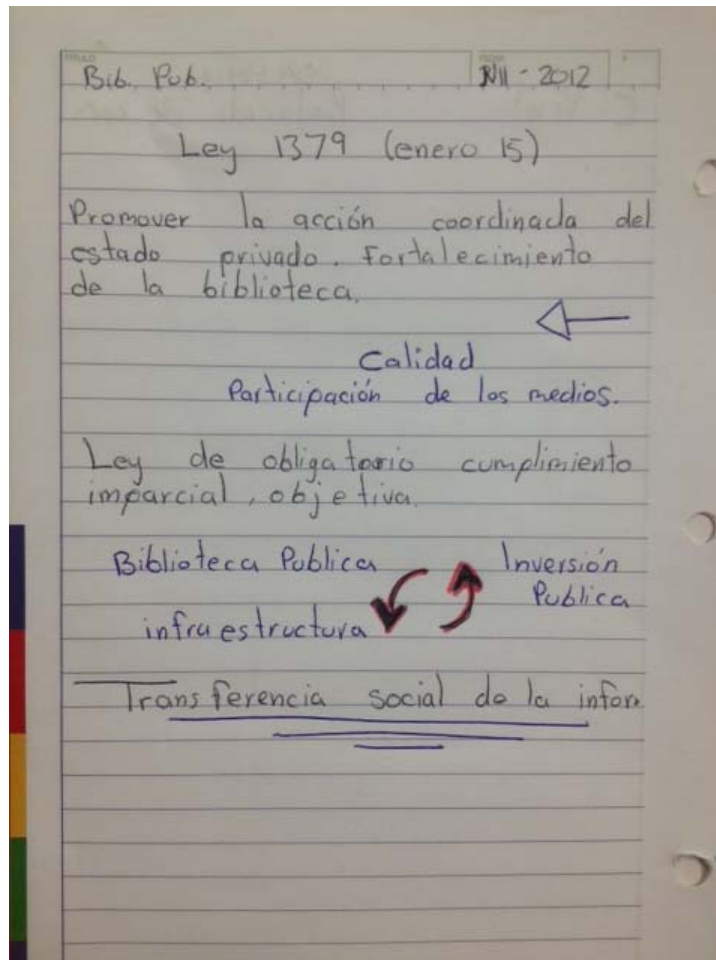 Bib. Pub. - 2012
Ley 1379 (enero 15)
Promover la acción coordinada del
estado privado. Fortalecimiento
de la biblioteca.
Calidad
Participación de los medios.
Ley de obligatorio cumplimiento
imparcial, objetiva.
Biblioteca Publica
Inversión
Publica
infraestructura
Transferencia social de la infor.